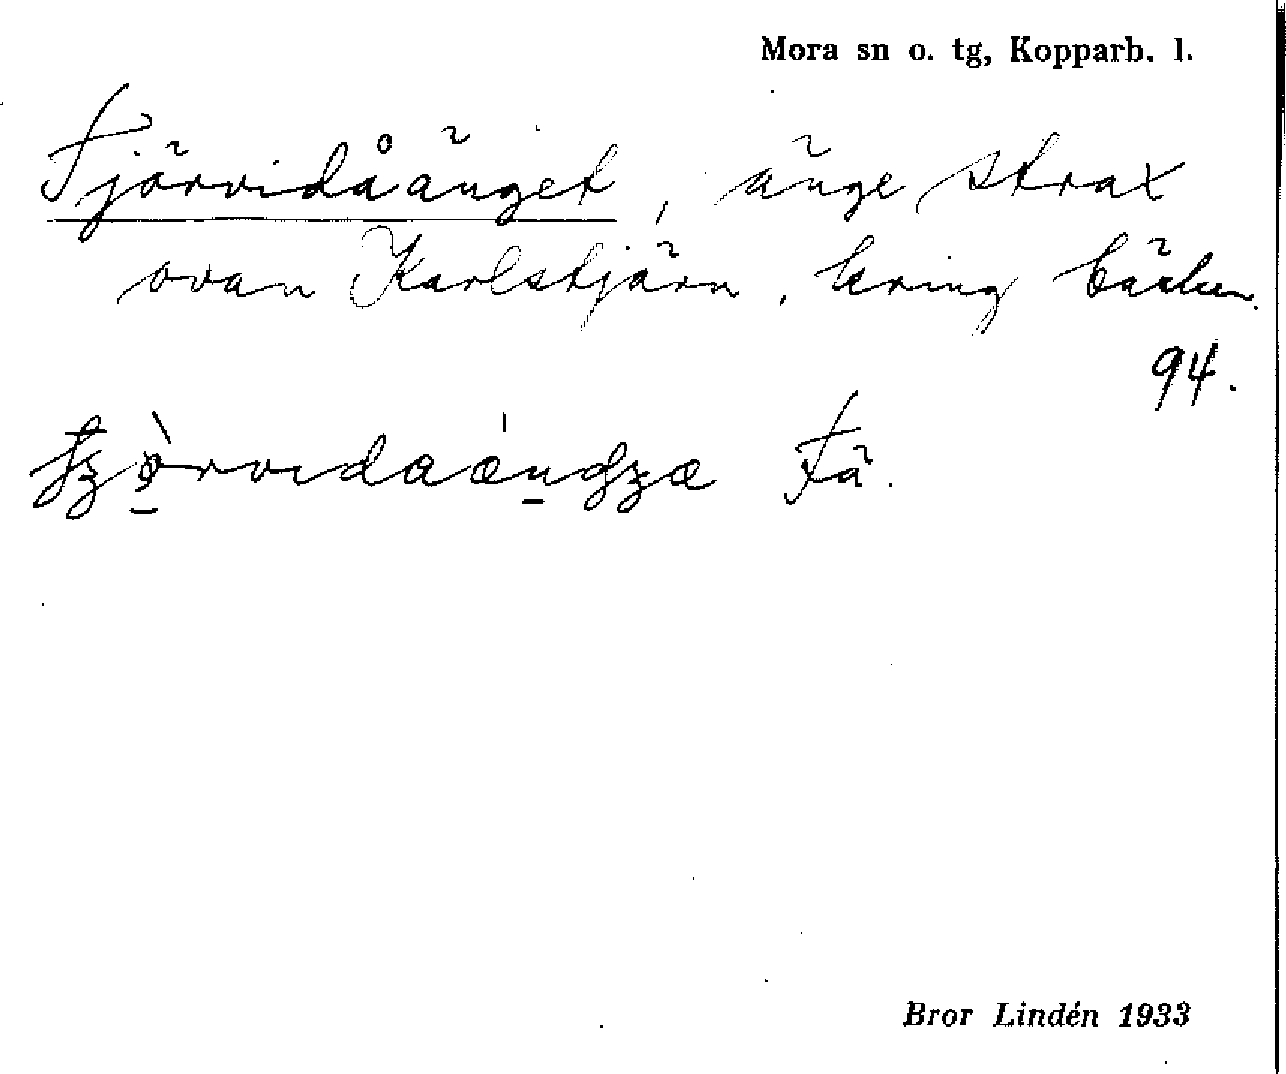 Mora sn o. tg, Kopparb. l.
Tjärvidåänget, änge strax
ovan Karlstjärn, kring bäcken.
94.
Fä.
Bror Lindén 1933